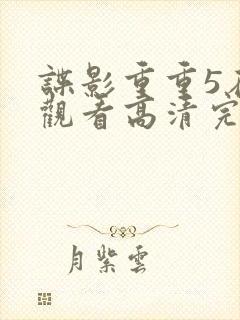 諜影重重5
觀看高清完
月紫雲